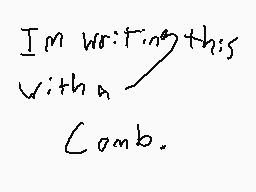 Im writing this
with a
Comb.